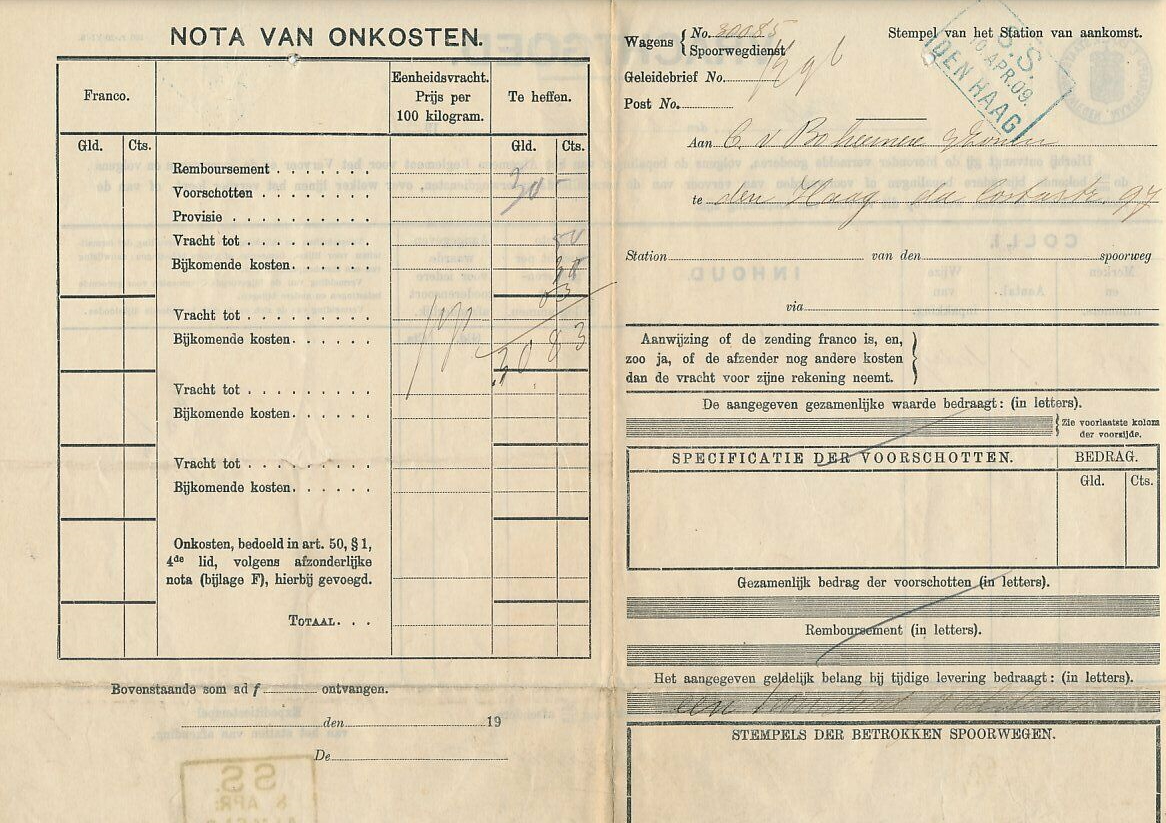 NOTA VAN ONKOSTEN.
Franco.
Eenheidsvracht.
Prijs per
100 kilogram.
Te heffen.
Gld. Cts. Gld. Cts.
Remboursement . . . . . .
Voorschotten . . . . . . . 30 -
Provisie . . . . . . . . .
Vracht tot . . . . . . . .
Bijkomende kosten. . . . . .
Vracht tot . . . . . . . .
Bijkomende kosten. . . . . . 30 83
Vracht tot . . . . . . . .
Bijkomende kosten. . . . . .
Vracht tot . . . . . . . .
Bijkomende kosten. . . . . .
Onkosten, bedoeld in art. 50, § 1,
4de lid, volgens afzonderlijke
nota (bijlage F), hierbij gevoegd.
TOTAAL. . .
Bovenstaande som ad f ontvangen.
den 19
De
S.S.
APR.
Wagens { No. 30085
Spoorwegdienst
Geleidebrief No. 1296
Post No.
Stempel van het Station van aankomst.
S.S.
10. APR. 09.
DEN HAAG
Aan C. v Bohemen & Zonen
te den Haag da Costastr. 97
Station van den spoorweg
via
Aanwijzing of de zending franco is, en,
zoo ja, of de afzender nog andere kosten
dan de vracht voor zijne rekening neemt. }
De aangegeven gezamenlijke waarde bedraagt: (in letters).
{ Zie voorlaatste kolom
der voorzijde.
SPECIFICATIE DER VOORSCHOTTEN. BEDRAG.
Gld. Cts.
Gezamenlijk bedrag der voorschotten (in letters).
Remboursement (in letters).
Het aangegeven geldelijk belang bij tijdige levering bedraagt: (in letters).
een honderd gulden
STEMPELS DER BETROKKEN SPOORWEGEN.